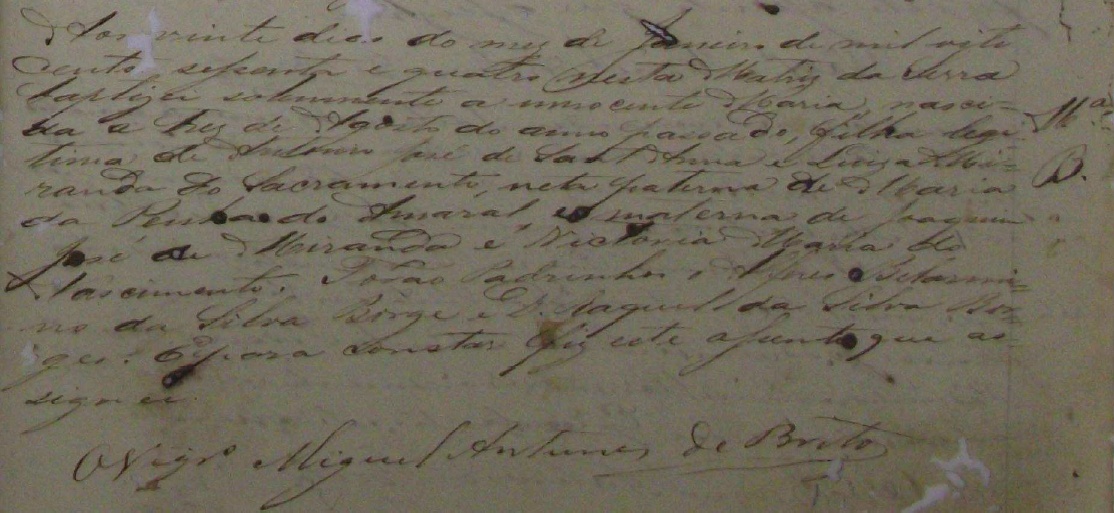 Aos vinte dias do mez de Janeiro de mil oito
cento, sessenta e quatro nesta Matriz da Serra
baptizei solemnemente a innocente Maria, nasci-
da a trez de Agosto do anno passado, filha legi-
tima de Antonio José de Sant Anna e Luiza Mi-
randa do Sacramento, neta paterna de Maria
da Penha do Amaral e materna de Joaquim
José de Miranda e Victoria Maria do
Nascimento. Forão Padrinhos o Alferes Belarmi-
no da Silva Borge e D. Raquel da Silva Bor-
ges. E para constar fiz este assento que as-
signei.
O Vigro Miguel Antunes de Brito
Ma
B.